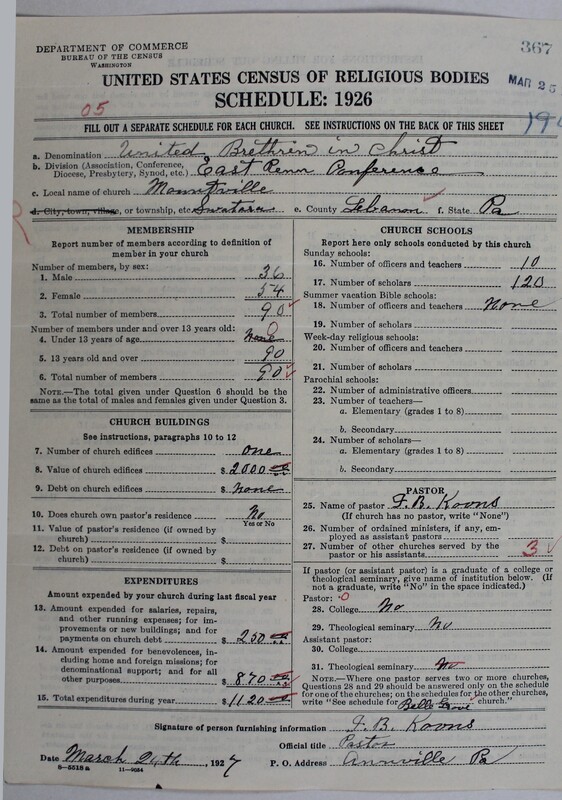 367
DEPARTMENT OF COMMERCE
BUREAU OF THE CENSUS
WASHINGTON
MAR 25
UNITED STATES CENSUS OF RELIGIOUS BODIES
SCHEDULE: 1926
05
FILL OUT A SEPARATE SCHEDULE FOR EACH CHURCH. SEE INSTRUCTIONS ON THE BACK OF THIS SHEET
a. Denomination United Brethren in Christ
b. Division (Association, Conference, Diocese, Presbytery, Synod, etc.) East Penn Conference
c. Local name of church Mountville
d. City, town, village, or township, etc. Swatara e. County Lebanon f. State Pa
MEMBERSHIP
Report number of members according to definition of
member in your church
Number of members, by sex:
1. Male 36
2. Female 54
3. Total number of members 90
Number of members under and over 13 years old:
4. Under 13 years of age None 0
5. 13 years old and over 90
6. Total number of members 90
NOTE.—The total given under Question 6 should be
the same as the total of males and females given under Question 3.
CHURCH BUILDINGS
See instructions, paragraphs 10 to 12
7. Number of church edifices one
8. Value of church edifices $ 2000
9. Debt on church edifices $ None
10. Does church own pastor's residence? No
Yes or No
11. Value of pastor's residence (if owned by
church) $
12. Debt on pastor's residence (if owned by
church) $
EXPENDITURES
Amount expended by your church during last fiscal year
13. Amount expended for salaries, repairs,
and other running expenses; for im-
provements or new buildings; and for
payments on church debt $ 250
14. Amount expended for benevolences, in-
cluding home and foreign missions; for
denominational support; and for all
other purposes $ 870
15. Total expenditures during year $ 1120
CHURCH SCHOOLS
Report here only schools conducted by this church
Sunday schools:
16. Number of officers and teachers 10
17. Number of scholars 120
Summer vacation Bible schools:
18. Number of officers and teachers None
19. Number of scholars
Week-day religious schools:
20. Number of officers and teachers
21. Number of scholars
Parochial schools:
22. Number of administrative officers
23. Number of teachers—
a. Elementary (grades 1 to 8)
b. Secondary
24. Number of scholars—
a. Elementary (grades 1 to 8)
b. Secondary
PASTOR
25. Name of pastor F. B. Koons
(If church has no pastor, write "None")
26. Number of ordained ministers, if any, em-
ployed as assistant pastors
27. Number of other churches served by the
pastor or his assistants 3
If pastor (or assistant pastor) is a graduate of a college or
theological seminary, give name of institution below. (If
not a graduate, write "No" in the space indicated.)
Pastor: 0
28. College No
29. Theological seminary No
Assistant pastor:
30. College
31. Theological seminary No
NOTE.—Where one pastor serves two or more churches,
Questions 28 and 29 should be answered only on the schedule
for one of the churches; on the schedules for the other churches,
write "See schedule for Belle Grove church."
Signature of person furnishing information F. B. Koons
Official title Pastor
Date March 24th, 1927 P. O. Address Annville Pa
8—5518 a 11—9034